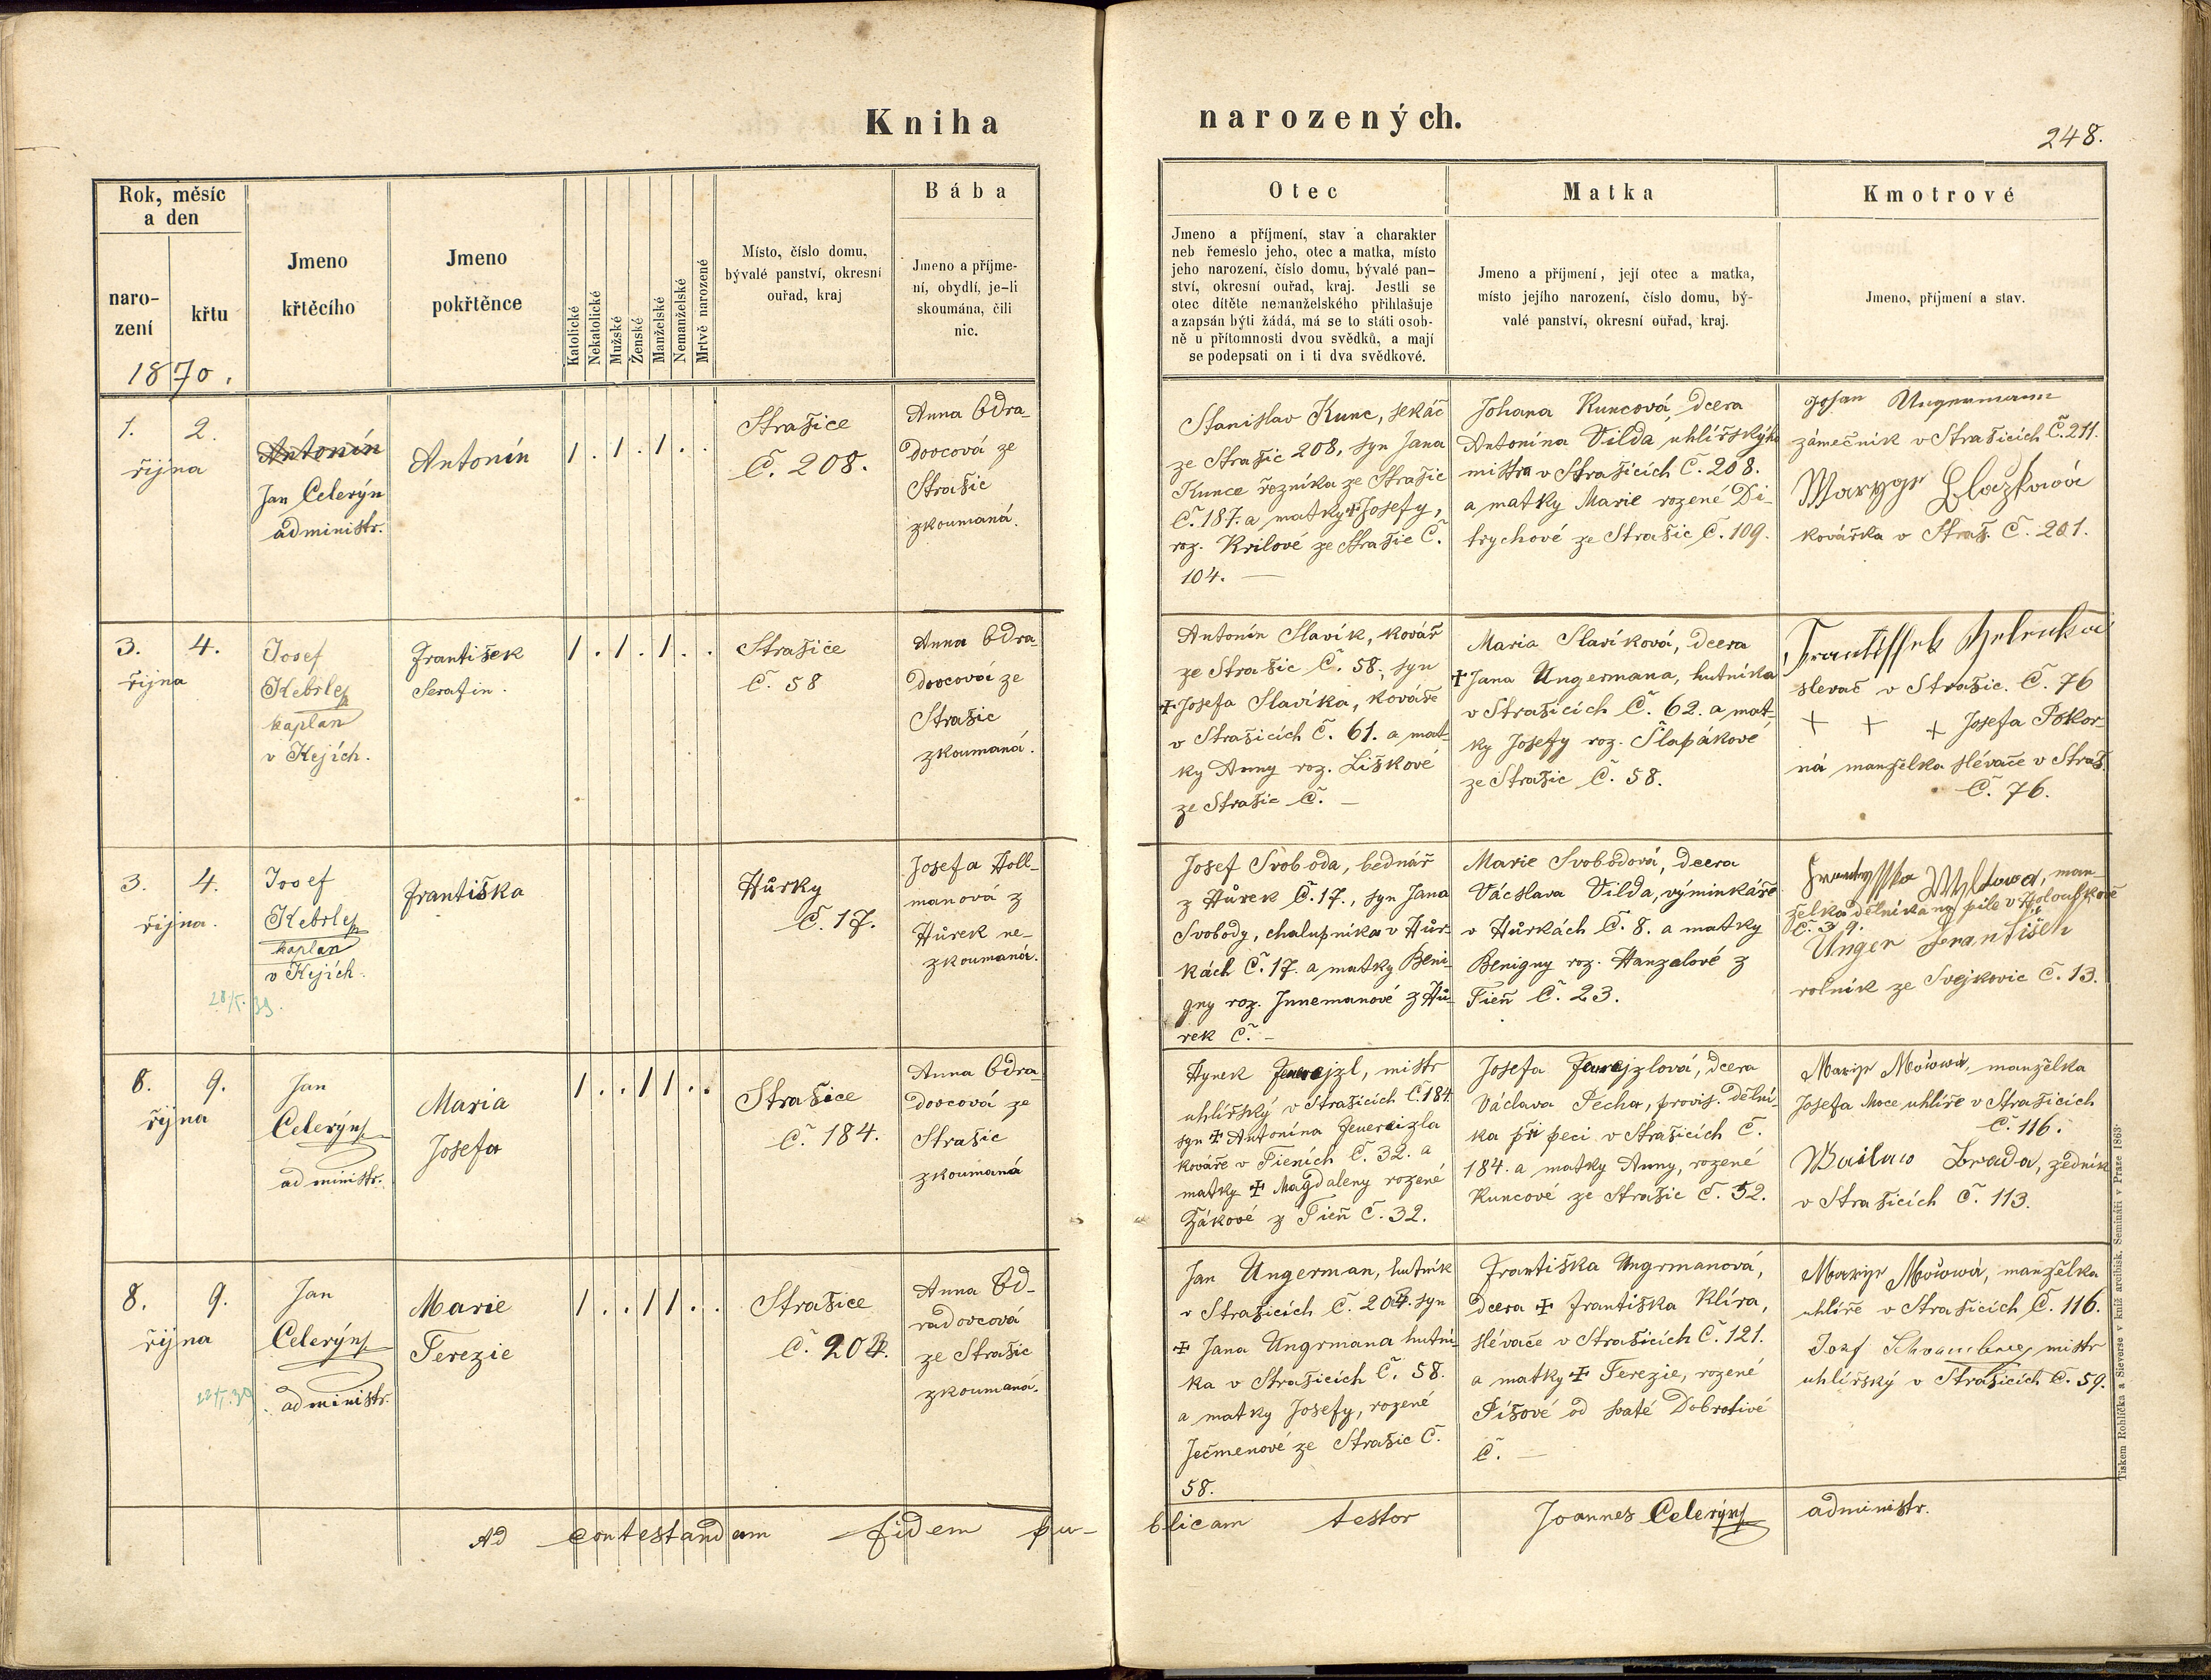 Kniha
narozených.
248.
Rok, měsíc
a den
naro-
zení
křtu
1870.
Jmeno
křtěcího
Jmeno
pokřtěnce
Katolické
Nekatolické
Mužské
Ženské
Manželské
Nemanželské
Mrtvě narozené
Místo, číslo domu,
bývalé panství, okresní
ouřad, kraj
Bába
Jmeno a příjme-
ní, obydlí, je-li
skoumána, čili
nic.
Otec
Jmeno a příjmení, stav a charakter
neb řemeslo jeho, otec a matka, místo
jeho narození, číslo domu, bývalé pan-
ství, okresní ouřad, kraj. Jestli se
otec dítěte nemanželského přihlašuje
a zapsán býti žádá, má se to státi osob-
ně u přítomnosti dvou svědků, a mají
se podepsati on i ti dva svědkové.
Matka
Jmeno a příjmení, její otec a matka,
místo jejího narození, číslo domu, bý-
valé panství, okresní ouřad, kraj.
Kmotrové
Jmeno, příjmení a stav.
1. 2.
října
Antonín
Jan Celerýn
administr.
Antonín
1 . 1 . 1 . .
Strašice
Č. 208.
Anna Odra-
dovcová ze
Strašic
zkoumaná.
Stanislav Kunc, sekáč
ze Strašic 208, syn Jana
Kunce řezníka ze Strašic
Č. 187. a matky ✝ Josefy,
roz. Krilové ze Strašic Č.
104. —
Johana Kuncová, dcera
Antonína Vilda uhlířskýho
mistra v Strašicích Č. 208.
a matky Marie rozené Di-
trychové ze Strašic Č. 109.
Johan Ungermann
zámečník v Strašicích Č. 211.
Maryye Blažková
kovářka v Straš. Č. 201.
3. 4.
října
Josef
Kebrle
kaplan
v Kejích.
František
Serafin.
1 . 1 . 1 . .
Strašice
Č. 58
Anna Odra-
dovcová ze
Strašic
zkoumaná.
Antonín Slavík, kovář
ze Strašic Č. 58, syn
✝ Josefa Slavíka, kováře
v Strašicích Č. 61. a mat-
ky Anny roz. Liškové
ze Strašic Č. —
Maria Slavíková, dcera
✝ Jana Ungermana, hutníka
v Strašicích Č. 62. a mat-
ky Josefy roz. Šlapákové
ze Strašic Č. 58.
Frantissek
slevač v Strašic. Č. 76
+ + + Josefa Pokor-
ná manželka slévače v Straš.
Č. 76.
3. 4.
října.
Josef
Kebrle
kaplan
v Kejích.
28/5. 39.
Františka
Hůrky
Č. 17.
Josefa Holl-
manová z
Hůrek ne-
zkoumaná.
Josef Svoboda, bednář
z Hůrek Č. 17., syn Jana
Svobody, chalupníka v Hůr-
kách Č. 17. a matky Beni-
gny roz. Innemanové z Hů-
rek Č. —
Marie Svobodová, dcera
Václava Vilda, výminkáře
v Hůrkách Č. 8. a matky
Benigny roz. Hanzalové z
Tieň Č. 23.
Frantysska Wyldowa, man-
želka dělníka na pile v Holoubkově
Č. 39.
Unger František
rolník ze Svejkovic Č. 13.
8. 9.
října
Jan
Celerýn
administr.
Maria
Josefa
1 . . 1 1 . .
Strašice
Č. 184.
Anna Odra-
dovcová ze
Strašic
zkoumaná
Hynek Feuerejzl, mistr
uhlířský v Strašicích Č. 184
syn ✝ Antonína Feuereizla
kováře v Tieních Č. 32. a
matky ✝ Magdaleny rozené
Žákové z Tieň Č. 32.
Josefa Feuerejzlová, dcera
Václava Pecha, provis. dělní-
ka při peci v Strašicích Č.
184. a matky Anny, rozené
Kuncové ze Strašic Č. 52.
Maryje Mocowá, manželka
Josefa Moce uhlíře v Strašicích
Č. 116.
Brada, zedník
v Strašicích Č. 113.
8. 9.
října
Jan
Celerýn
administr.
Marie
Terezie
1 . . 1 1 . .
Strašice
Č. 204.
Anna Od-
radovcová
ze Strašic
zkoumaná.
Jan Ungerman, hutník
v Strašicích Č. 204. syn
✝ Jana Ungrmana hutní-
ka v Strašicích Č. 58.
a matky Josefy, rozené
Ječmenové ze Strašic Č.
58.
Františka Ungrmanová,
dcera ✝ Františka Klíra,
slévače v Strašicích Č. 121.
a matky ✝ Terezie, rozené
Píšové od svaté Dobrotivé
Č. —
Maryje Mocowá, manželka
uhlíře v Strašicích Č. 116.
mistr
uhlířský v Strašicích Č. 59.
Ad contestandam fidem pu-
blicam testor Joannes Celerýn administr.
Tiskem Rohlíčka a Sieverse v kníž. arcibisk. Semináři v Praze 1863.